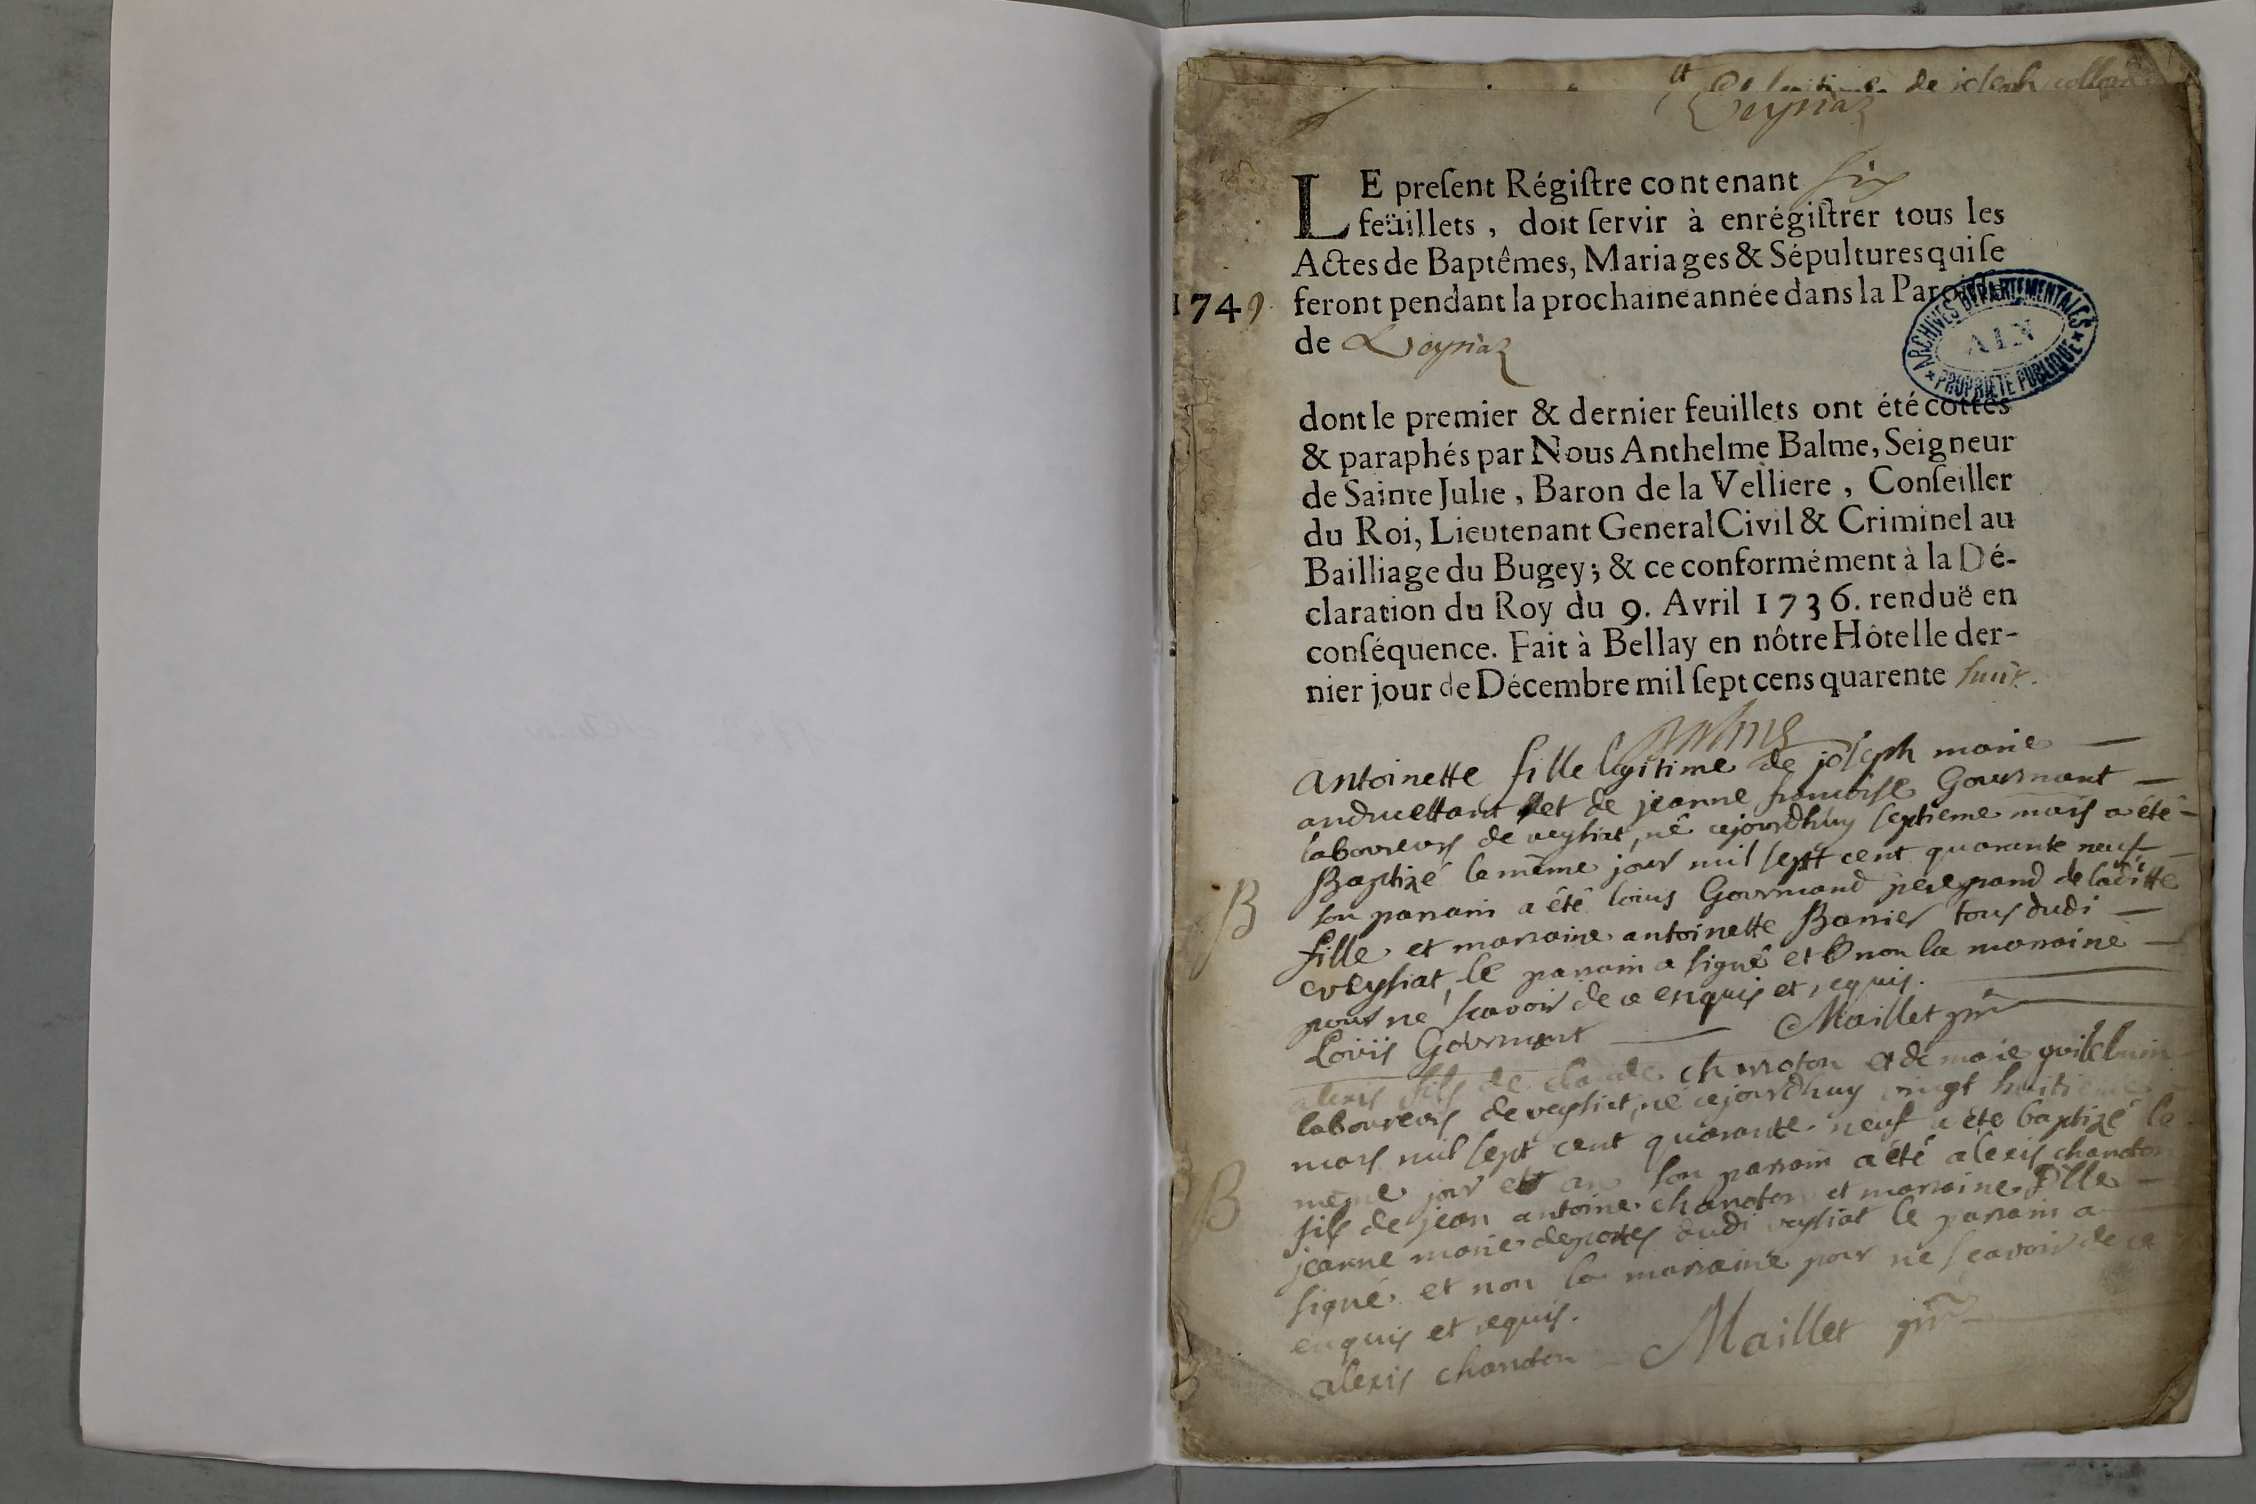 Et legitime de joseph
Veyriaz
LE preſent Régiſtre contenant six
feüillets, doit ſervir à enrégiſtrer tous les
Actes de Baptêmes, Mariages & Sépultures qui ſe
1749
feront pendant la prochaine année dans la Paroiſſe
de Veyriaz
ARCHIVES DÉPARTEMENTALES
AIN
PROPRIÉTÉ PUBLIQUE
dont le premier & dernier feuillets ont été cottés
& paraphés par Nous Anthelme Balme, Seigneur
de Sainte Julie, Baron de la Velliere, Conſeiller
du Roi, Lieutenant General Civil & Criminel au
Bailliage du Bugey; & ce conformément à la Dé-
claration du Roy du 9. Avril 1736. renduë en
conſéquence. Fait à Bellay en nôtre Hôtel le der-
nier jour de Décembre mil ſept cens quarente huit.
Balme
antoinette fille legitime de joseph marie
et de jeanne francoise Gourmant
laboureurs de veysiat, né cejourdhuy septieme mars a été
Baptizé le même jour mil sept cent quarante neuf
B
son parrain a été loüis Gourmand pere grand de laditte
fille et marraine antoinette Barrier tous dudi
veysiat, le parrain a signé et non la marraine
pour ne scavoir de ce enquis et requis.
Loüis Gourmant Maillet
alexis fils de claude charroton et de marie
laboureurs de veysiat, né cejourdhuy vingt huitieme
mars mil sept cent quarante neuf a été baptizé le
même jour et an son parrain a été alexis charroton
B
fils de jean antoine charroton et marraine
jeanne marie deportes dudi veysiat le parrain a
signé et non la marraine pour ne scavoir de ce
enquis et requis.
alexis charroton Maillet